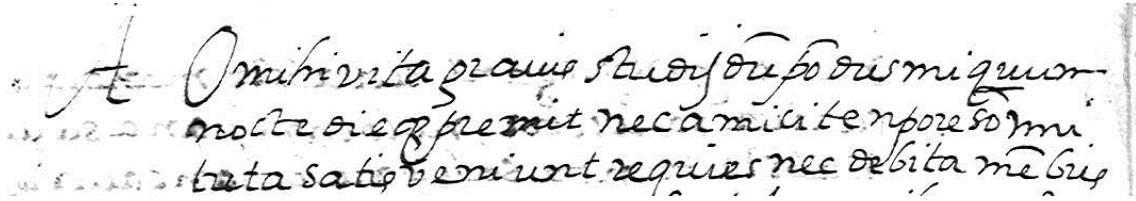 A O mihi vita gravis studijs dū pōdus miquum
nocte dieqȝ premit nec amici tenpore sōmni
tuta satis veniunt requies nec debita mēbris